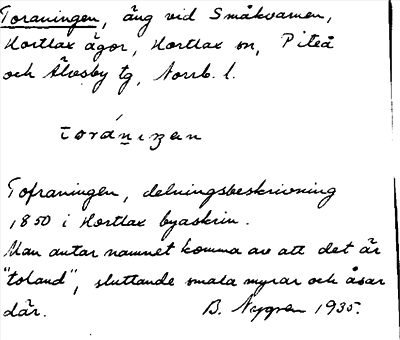 Toraningen, äng vid Småkvarnen,
Hortlax ägor, Hortlax sn, Piteå
och Älvsby tg, Norrb. l.
Tofraningen, delningsbeskrivning
1850 i Hortlax byaskrin.
Man antar namnet komma av att det är
"toland", sluttande smala myrar och åsar
där. B. Nygren 1935.